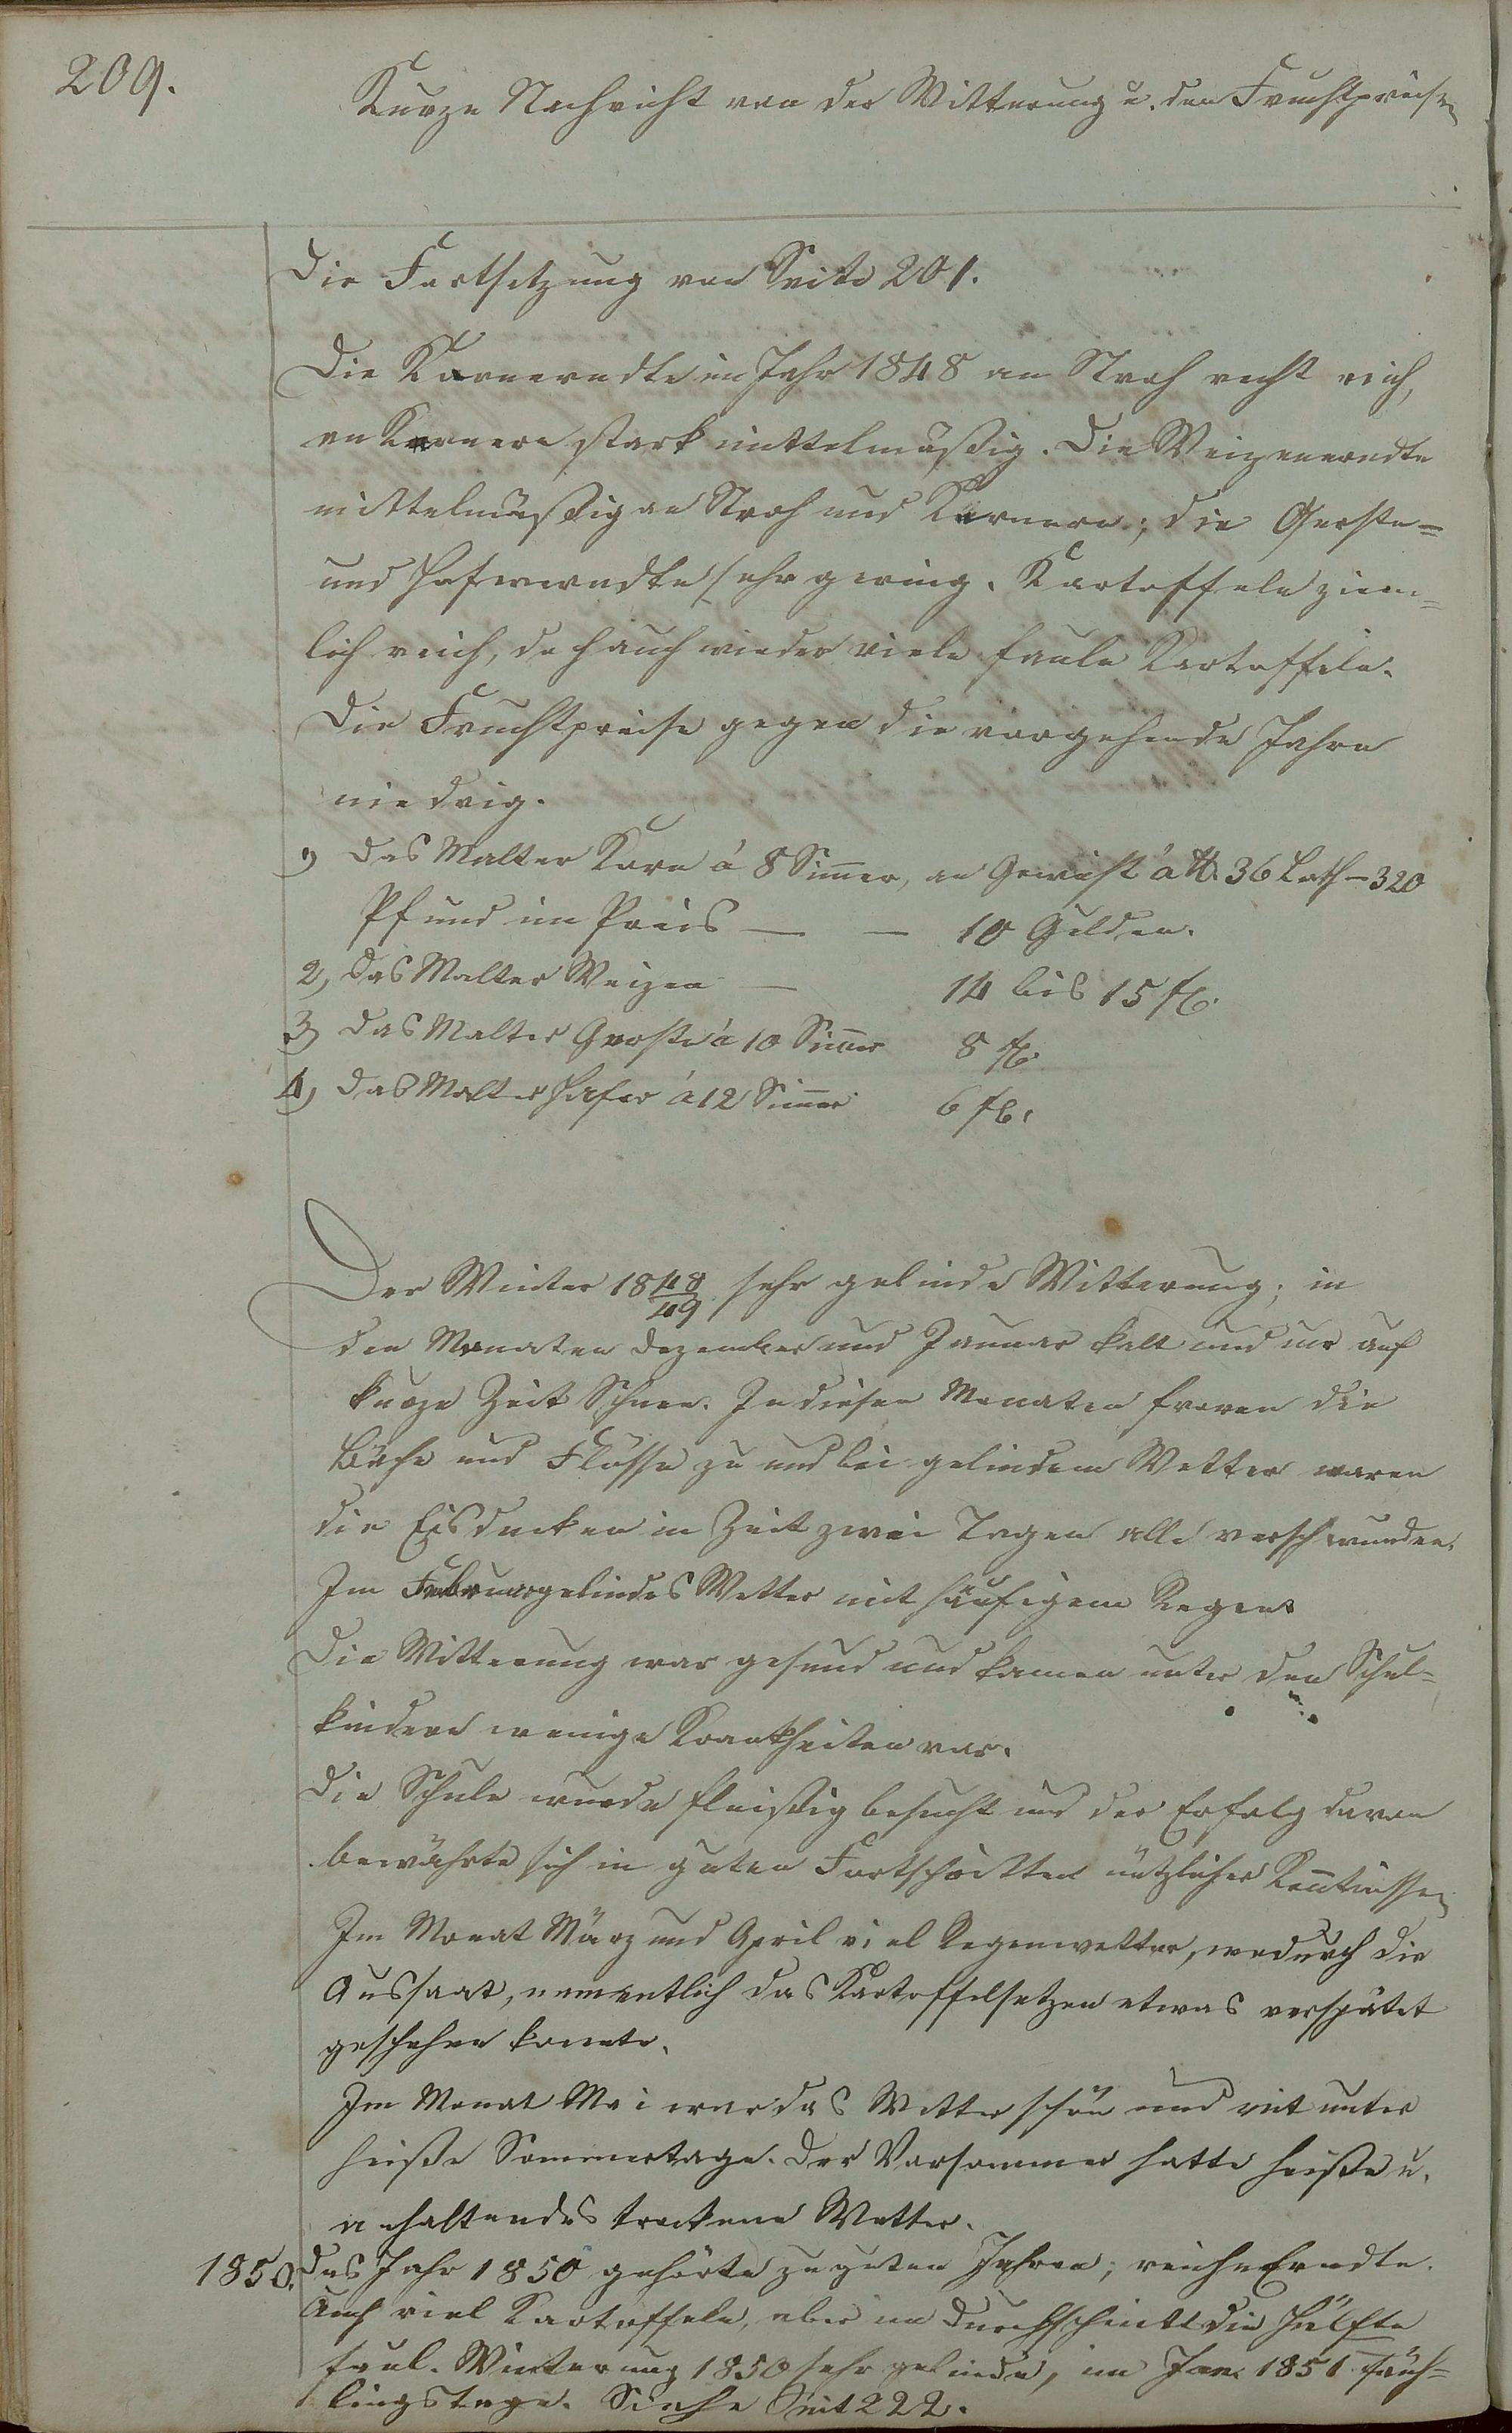 209.
Kurze Nachricht von der Witterung u. den Fruchtpreisen
Die Fortsetzung von Seite 201.
Die Kornerndte im Jahr 1848 an Stroh recht reich,
an Körnern stark mittelmäßig. Die Weizenerndte
mittelmäßig an Stroh und Körnern; die Gerste=
und Hafererndte sehr gering. Kartoffeln ziem=
lich reich, doch auch wieder viele faule Kartoffeln.
Die Fruchtpreise gegen die vorgehende Jahre
niedrig.
1) Das Malter Korn á 8 Simmer, an Gewicht á ℔. 36 Loth – 320
Pfund im Preis — — 10 Gulden.
2, Das Malter Weizen — 14 bis 15 fl.
3) Das Malter Gerste á 10 Simmer 8 fl.
4) Das Malter Hafer á 12 Simmer 6 fl.
Der Winter 1848/49 sehr gelinde Witterung; in
den Monaten Dezember und Januar kalt und nur auf
kurze Zeit Schnee. In diesen Monaten froren die
Bäche und Flüsse zu und bei gelindem Wetter waren
die Eisdecken in Zeit zwei Tagen alle verschwunden.
Im Februar gelindes Wetter mit häufigem Regen.
Die Witterung war gesund und kamen unter den Schul=
kindern wenige Krankheiten vor.
Die Schule wurde fleißig besucht und der Erfolg davon
bewährte sich in guten Fortschritten nützlicher Kenntnissen
Im Monat März und April viel Regenwetter, wodurch die
Aussaat, namentlich das Kartoffelsetzen etwas verspätet
geschehen konnte.
Im Monat Mai war das Wetter schön und mit unter
heiße Sommertage. Der Vorsommer hatte heiße u.
anhaltendes trockene Wetter.
1850. Das Jahr 1850 gehörte zu guten Jahren; reiche Erndte.
Auch viel Kartoffeln, aber im Durchschnitt die Hälfte
faul. Winterung 1850 sehr gelinde, im Jan. 1851 früh=
lingstage. Siehe Seit 222.